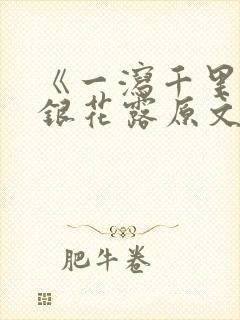 《一泻千里
银花露原文
肥牛卷